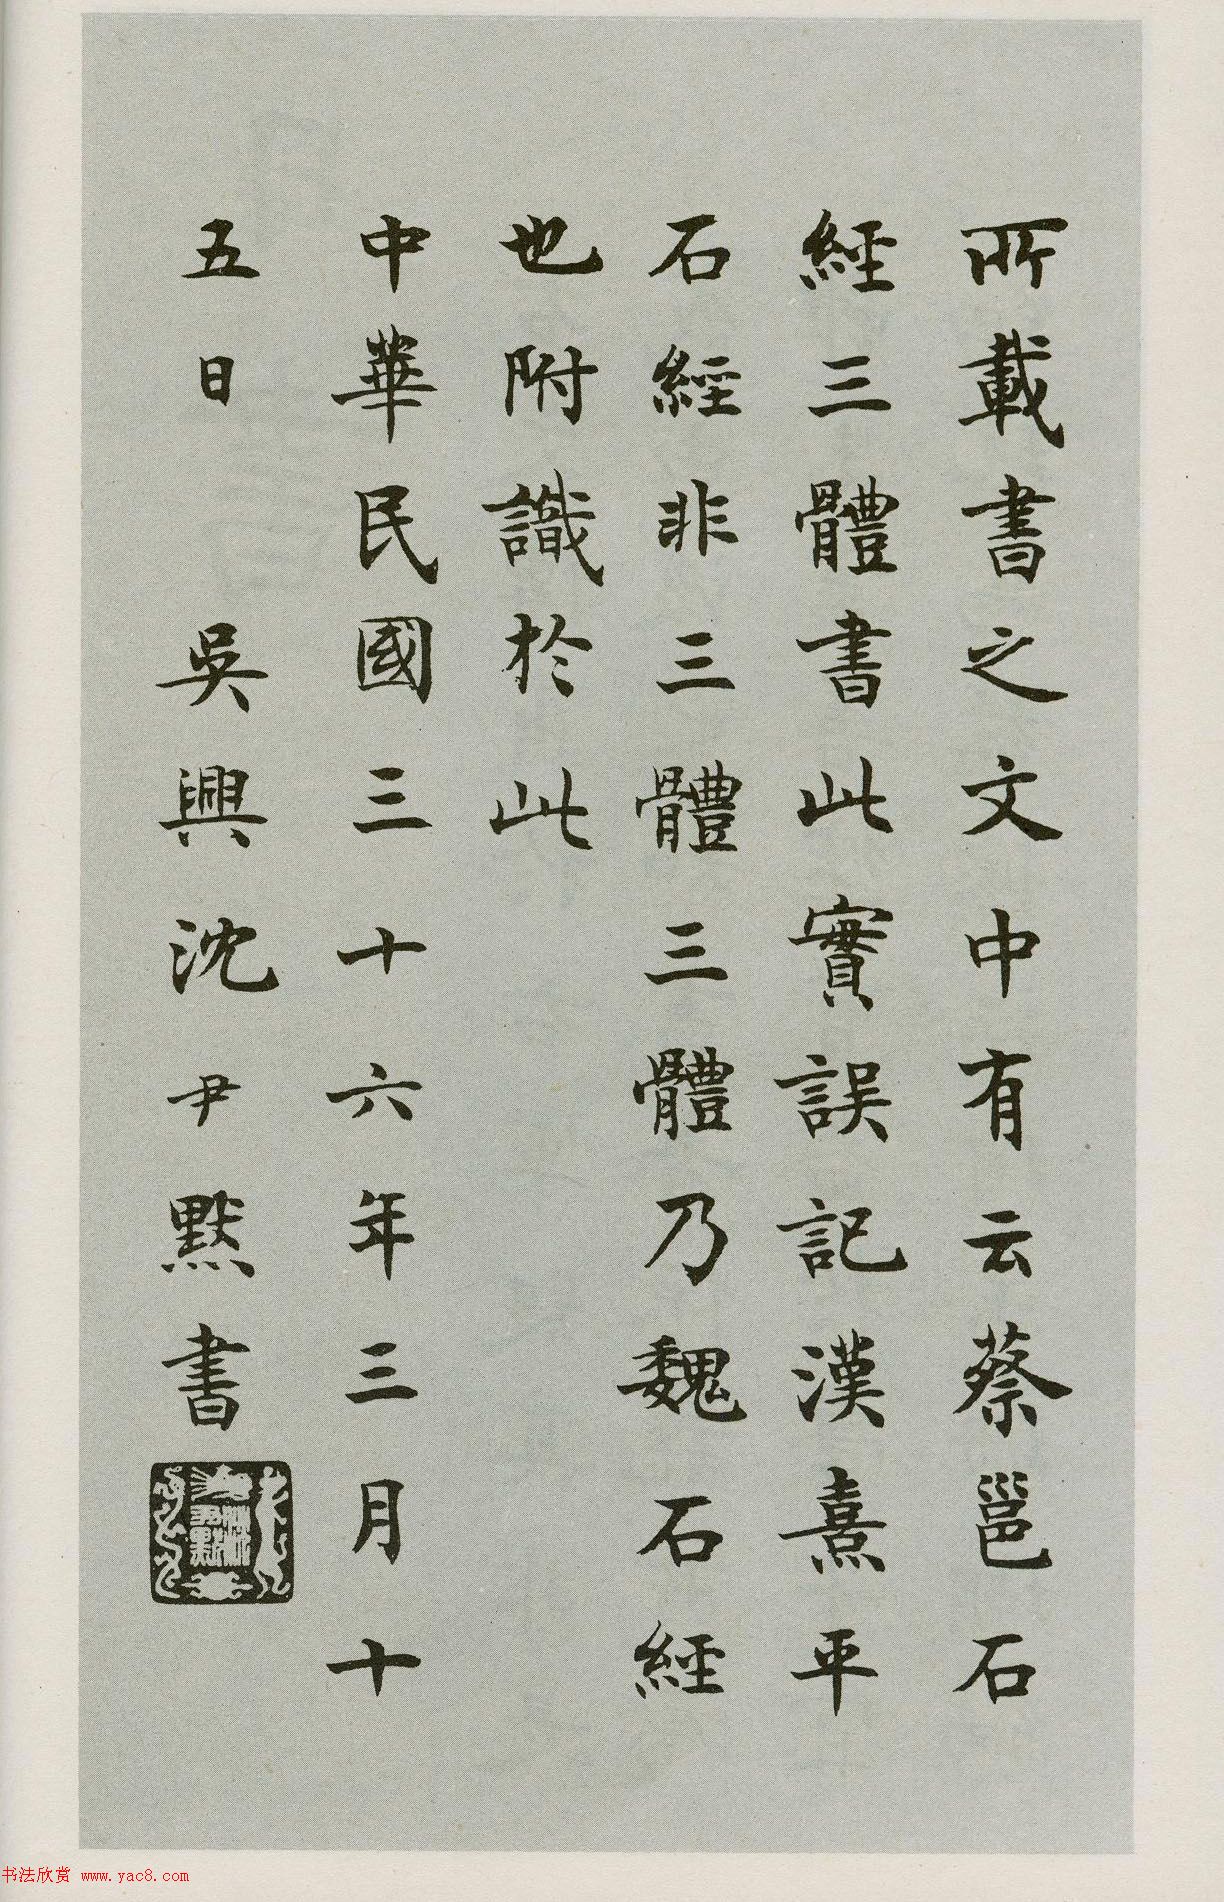 所載書之文中有云蔡邕石
經三體書此實誤記漢熹平
石經非三體三體乃魏石經
也附識於此
中華民國三十六年三月十
五日 吳興沈尹默書
沈尹默
书法欣赏 www.yac8.com